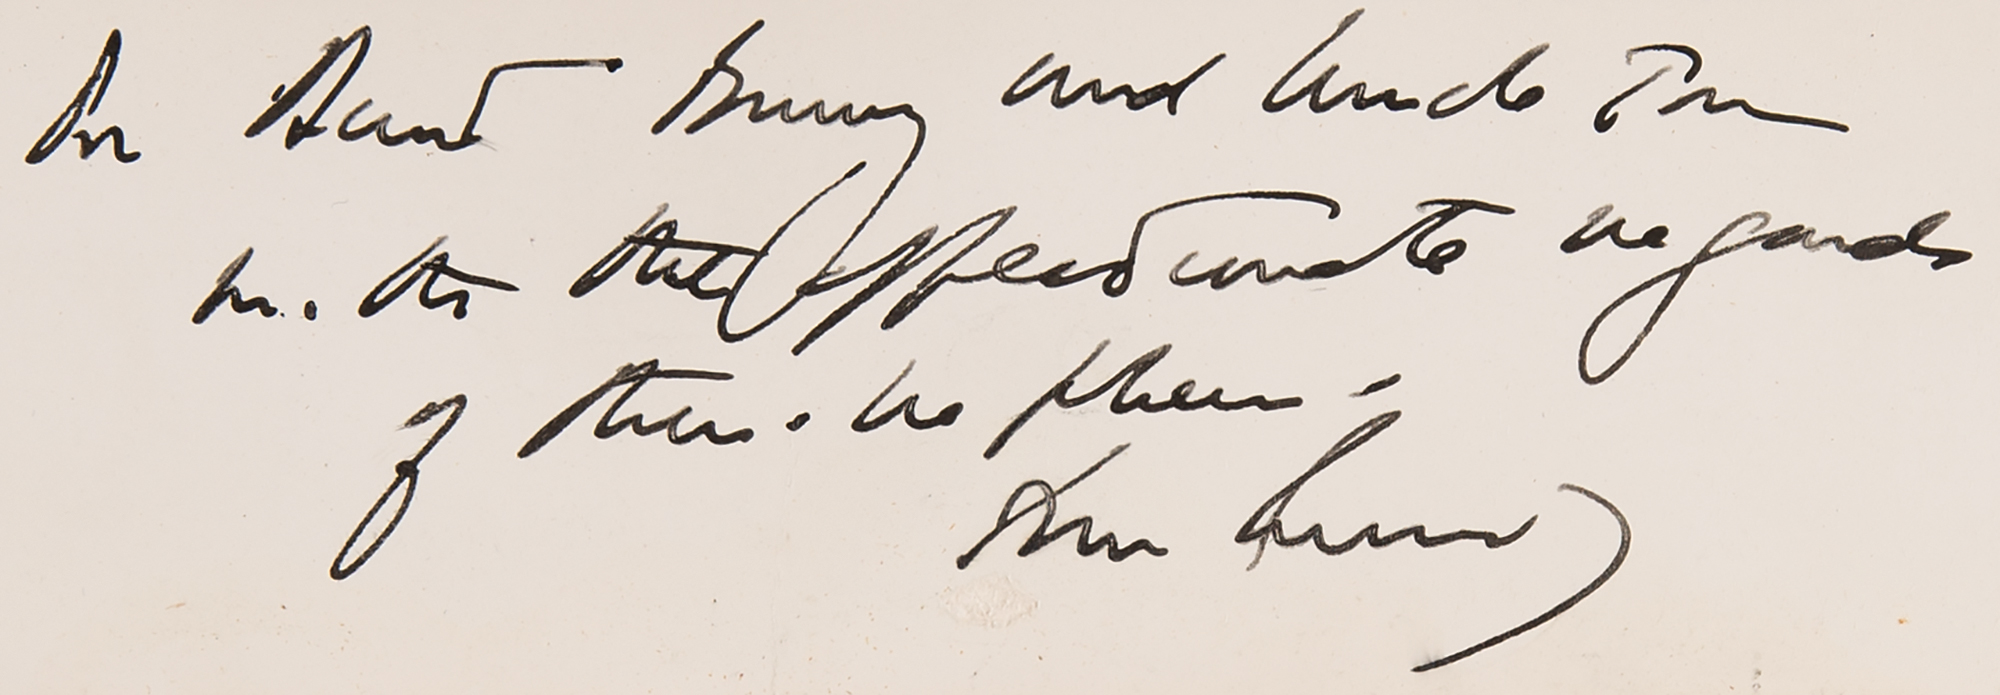 For Aunt Bunny and Uncle Tom
with the affectionate regards
of their nephew -
John Kennedy